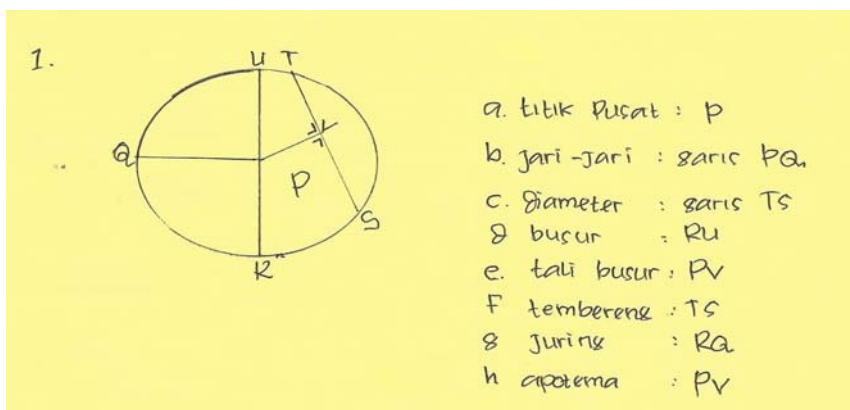 1.
U T
Q
P
S
R
a. titik pusat : P
b. jari-jari : garis PQ
c. diameter : garis TS
d busur : RU
e. tali busur : PV
f tembereng : TS
g juring : RQ
h apotema : PV